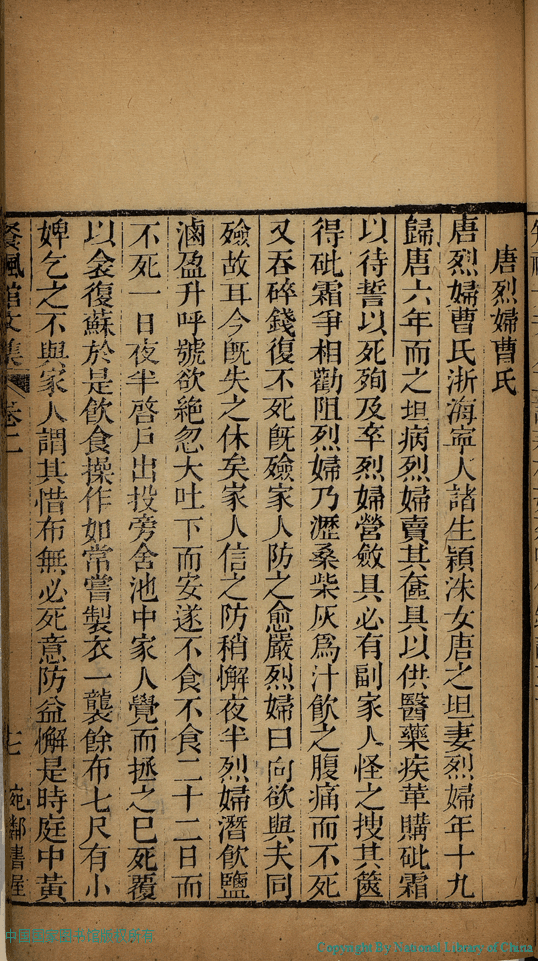 唐烈婦曹氏
唐烈婦曹氏浙海寧人諸生頴洙女唐之坦妻烈婦年十九
歸唐六年而之坦病烈婦賣其奩具以供醫藥疾革購砒霜
以待誓以死殉及卒烈婦營斂具必有副家人怪之搜其篋
得砒霜爭相勸阻烈婦乃瀝桑柴灰爲汁飮之腹痛而不死
又吞碎錢復不死旣殮家人防之愈嚴烈婦曰向欲與夫同
殮故耳今旣失之休矣家人信之防稍懈夜半烈婦潛飮鹽
滷盈升呼號欲絶忽大吐下而安遂不食不食二十二日而
不死一日夜半啓戶出投旁舍池中家人覺而拯之巳死覆
以衾復蘇於是飮食操作如常嘗製衣一襲餘布七尺有小
婢乞之不與家人謂其惜布無必死意防益懈是時庭中黃
餐楓館文集 卷二 七 宛鄰書屋
Copyright By National Library of China